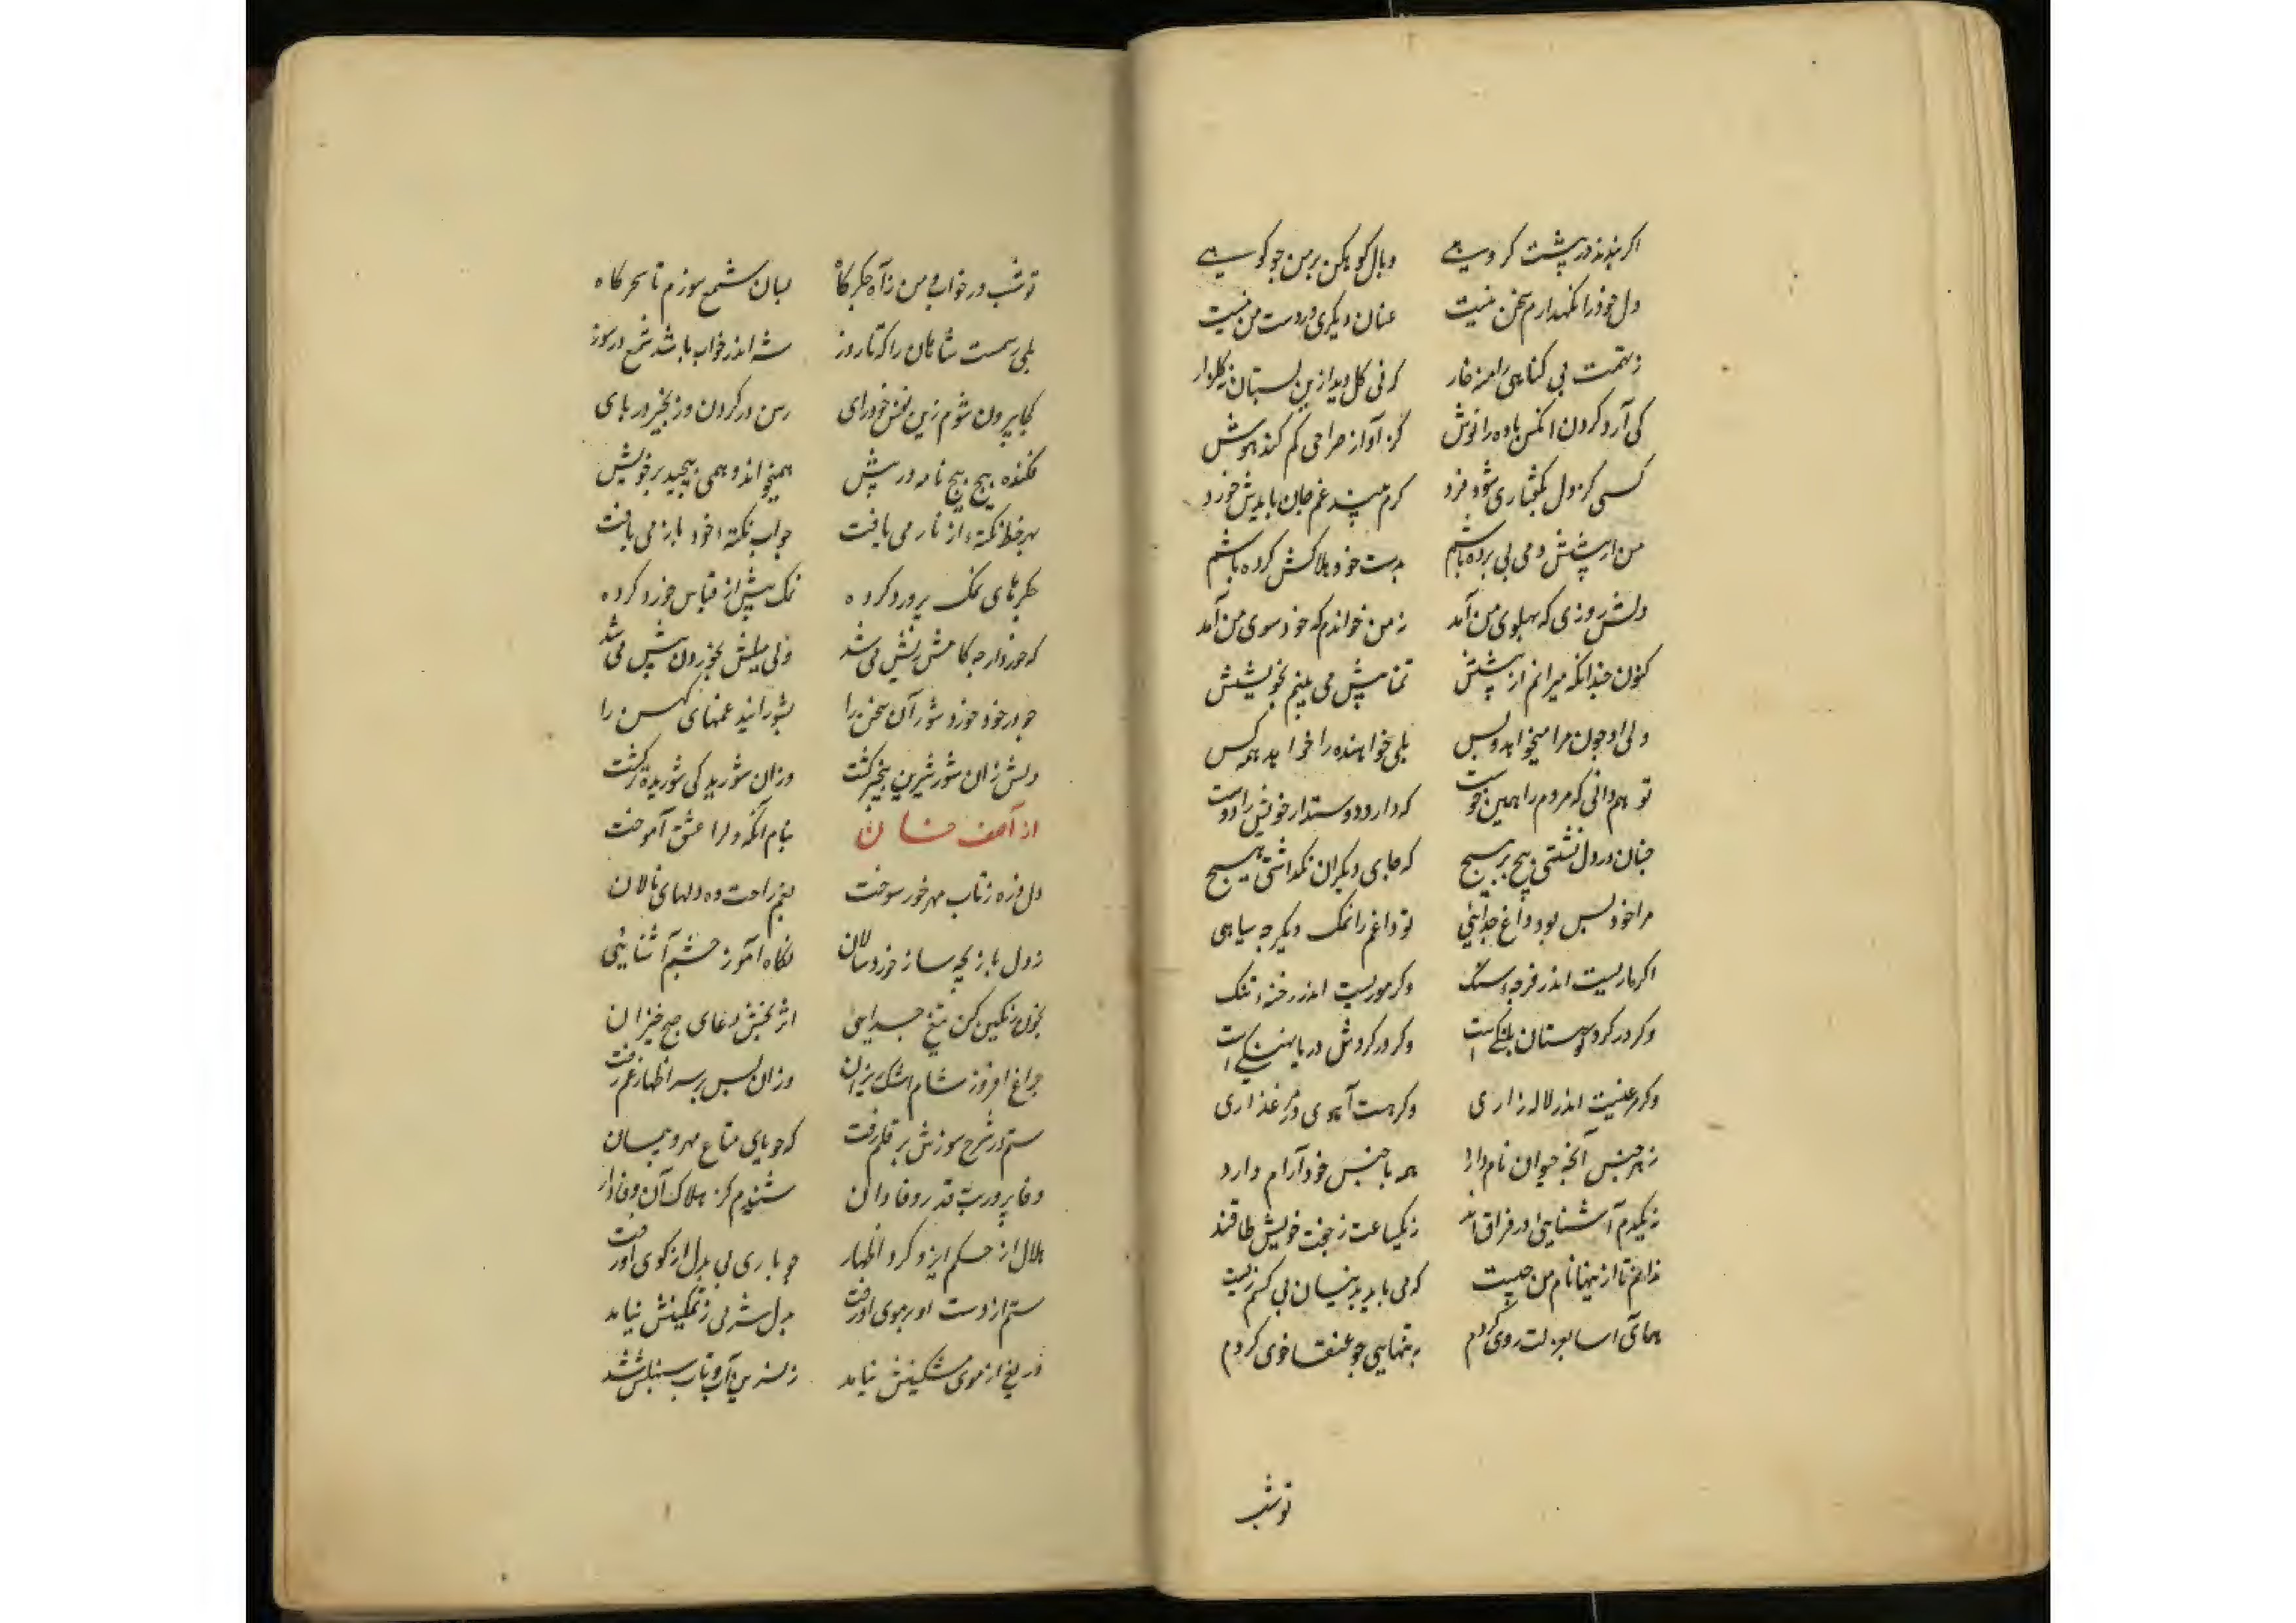 اکر بیند در پشت کر دیهی وبال کوهکن بر من جو کوهی
دل خود را نکهدارم سخن نیست عنان دیکری در دست من نیست
ز تهمت بی کناهی را منه خار که نی کل دید ازین بستان نه کلزار
کی آرد کردن انکس باده را نوش کز آواز صراحی کم کند هوش
کسی کز دل بکفتاری شود فرد کرم بیند غم جان بایدش خورد
من ار پیشش دمی پی برده باشم بدست خود هلاکش کرده باشم
دلش روزی که پهلوی من آمد نه من خواندم که خود سوی من آمد
کنون چندانکه میرانم از پیشش تمنا پیش می بینم بخویشش
ولی او چون مرا میخواهد و بس بلی خواهنده را خواهد همه کس
تو هم دانی که مردم را همین خوست که دارد دوستدار خویش را دوست
چنان در دل نشستی پیچ بر پیچ که جای دیکران نکذاشتی هیچ
مرا خود بس بود داغ جدائی تو داغم را نمک دیکر چه سایی
اکر ماریست اندر فرجهٔ سنک وکر موریست اندر رخنهٔ تنک
وکر در کرد کوهستان پلنکیست وکر در کردش دریا نهنکیست
وکر مرغیست اندر لاله زاری وکر هست آهوی در مرغذاری
ز هر جنس آنچه حیوان نام دارد همه با جنس خود آرام دارد
نه یکدم آشنایی را در فراق اند نه یکساعت ز جفت خویش طاقند
ندانم تا از ینها نام من چیست که می باید بدینسان بی کسم زیست
همای آسا بعزلت روی کردم به تنهایی جو عنقا خوی کردم
توشب
توشب در خواب و من ز آه جکرکاه بسان شمع سوزم تا سحرکاه
بلی رسمست شاهان را که تا روز شه اندر خواب باشد شمع در سوز
کجا بیرون شوم زین نفس خودرای رسن در کردن و زنجیر در پای
فکنده پیچ پیچ نامه در پیش همیخواند و همی پیچید بر خویش
بهر خط نکتهٔ از ناز می یافت جواب نکتهٔ خود باز می یافت
جکرهای نمک پرورد کرده نمک بیش از قیاس خورد کرده
که خوردار چه کامش ریش می شد ولی میلش بخوردن بیش می شد
جو در خود خورد شور آن سخن را بشورانید غمهای کهن را
دلش زان شور شیرین بیخبر کشت وزان شوریدکی شوریده تر کشت
از آصف خان بنام آنکه دلرا عشق آموخت
دل ذره ز تاب مهر خور سوخت بغم راحت ده دلهای نالان
ز دل بازیچه ساز خوردسالان نکاه آموز چشم آشنائی
بخون رنکین کن تیغ جدایی اثر بخش دعای صبح خیزان
چراغ افروز شام اشک ریزان وزان پس بر سر اظهار غم رفت
ستم در شرح سوزش بر قلم رفت که جویای متاع مهر و پیمان
وفا پرورد قدر وفا دان شنیدم کز هلاک آن وفادار
ملال از حکم ایزد کرد اظهار چو باری بی بدل از کوی او رفت
ستم از دست او بر موی او رفت بدل شه بی ز تمکینش نیامد
دریغ از موی مشکینش نیامد ز نسرین آب و تاب سنبلش شد